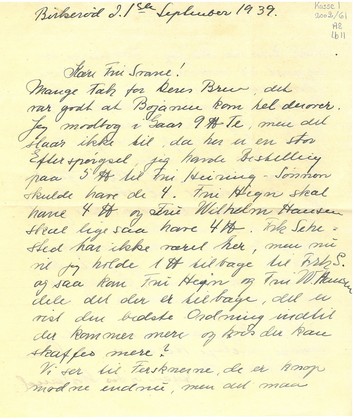 Kasse 1
2003/61
A2
1611
Birkerød d. 1ste September 1939.
Kære Fru Svane!
Mange Tak for Deres Brev, det
var godt at Bojanen kom hel derover.
Jeg modtog i Gaar 9 ℔ Te, men det
slaar ikke til, da her er en stor
Efterspørgsel, jeg havde Bestilling
paa 5 ℔ til Fru Heiring-
skulde have de 4. Fru Hegn skal
have 4 ℔ og Fru Wilhelm Hansen
skal ligesaa have 4 ℔. Frk Sehe-
sted har ikke været her, men nu
vil jeg holde 1 ℔ tilbage til Frk S.
og saa kan Fru Hegn og Fru W. Hansen
dele det der er tilbage, det er
vist den bedste Ordning indtil
der kommer mere og hvis du kan
skaffes mere?
Vi ser til Fersknerne, de er knap
modne endnu, men det maa